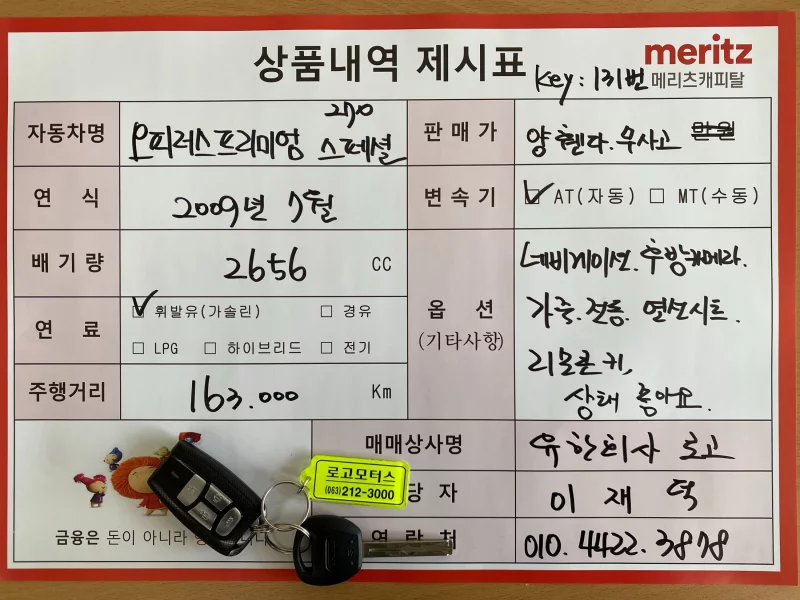 상품내역 제시표
Key : 131번
meritz
메리츠캐피탈
자동차명
오피러스프리미엄 270 스페셜
판매가
양휀다.무사고 만원
연 식
2009년 7월
변속기
AT(자동) MT(수동)
배기량
2656 CC
옵 션
(기타사항)
네비게이션.후방카메라.
가죽.전동.열선시트.
리모콘키,
상태 좋아요.
연 료
휘발유(가솔린) 경유
LPG 하이브리드 전기
주행거리
163.000 Km
매매상사명
유한회사 로고
당 자
이 재 덕
연 락 처
010.4422.3878
로고모터스
(063)212-3000
금융은 돈이 아니라